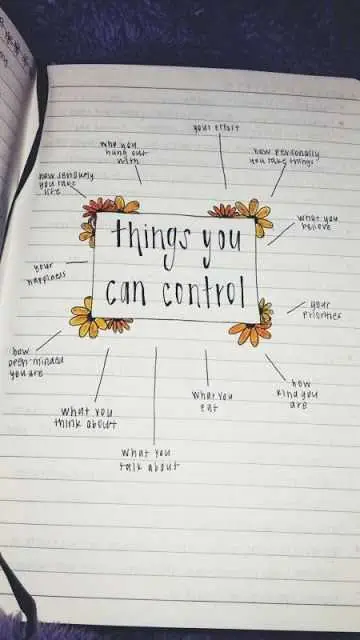 your effort
who you
hung out
with
how personally
you take things
how seriously
you take
life
what you
believe
things you
can control
your
happiness
your
priorities
how
open-minded
you are
how
kind you
are
what you
think about
what you
eat
what you
talk about